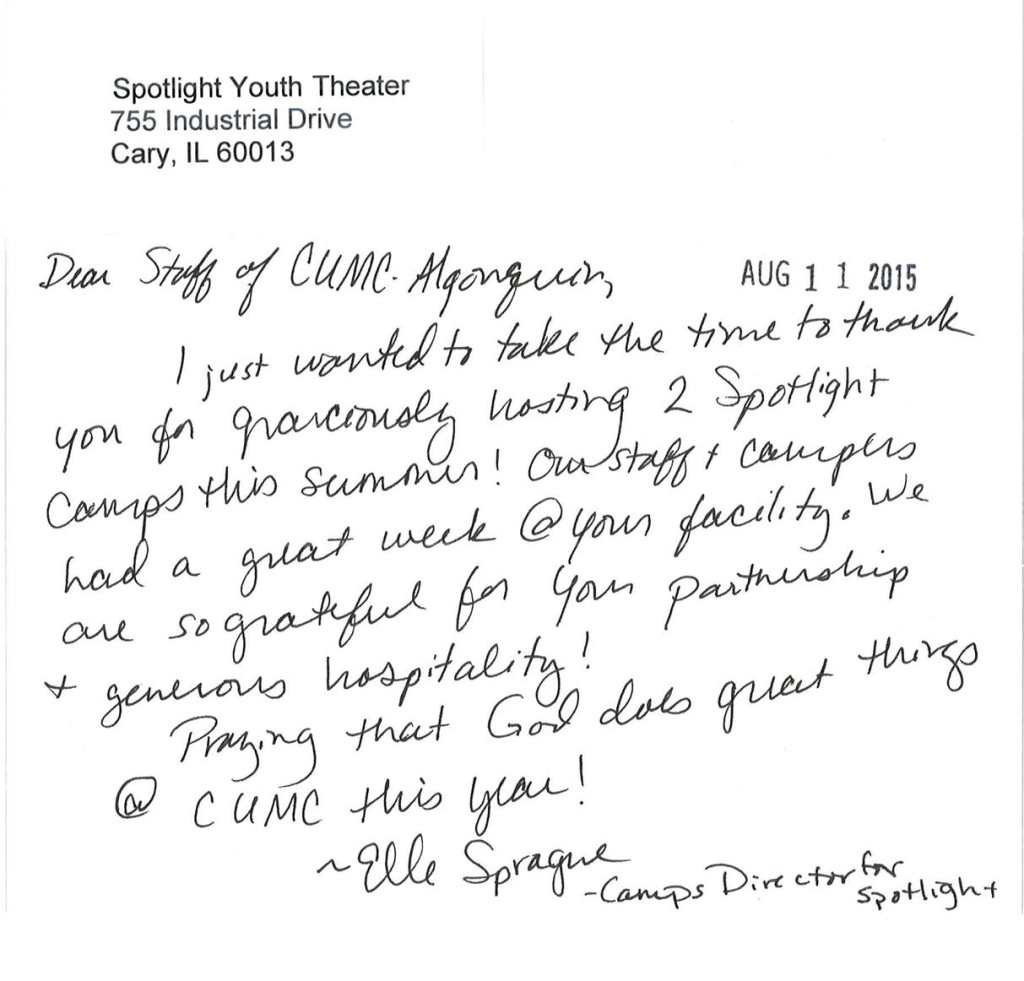 Spotlight Youth Theater
755 Industrial Drive
Cary, IL 60013
Dear Staff of CUMC-Algonquin,
AUG 1 1 2015
I just wanted to take the time to thank
you for graciously hosting 2 Spotlight
Camps this summer! Our staff + campers
had a great week @ your facility. We
are so grateful for your partnership
+ generous hospitality!
Praying that God does great things
@ CUMC this year!
~Elle Sprague
-Camps Director for
Spotlight